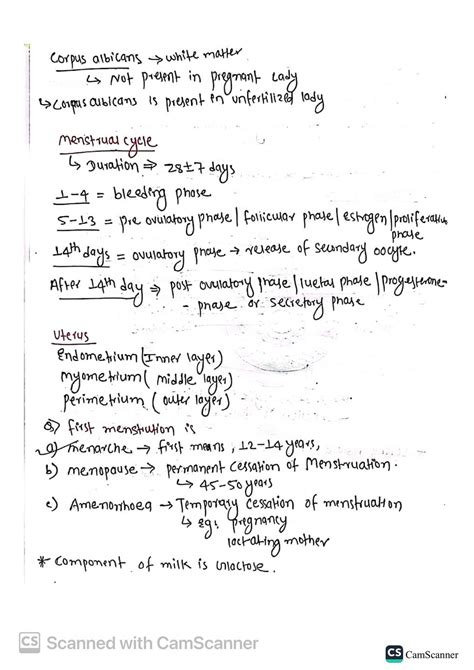 Corpus albicans → white matter
↳ Not present in pregnant lady
↳ Corpus albicans is present in unfertilized lady
Menstrual cycle
↳ Duration ⇒ 28±7 days
1-4 = bleeding phase
5-13 = pre ovulatory phase / follicular phase / estrogen / proliferative
phase
14th days = ovulatory phase → release of secondary oocyte.
After 14th day ⇒ post ovulatory phase / luetal phase / progesterone-
- phase or secretory phase
Uterus
Endometrium (Inner layer)
myometrium ( middle layer)
perimetrium ( outer layer)
Q) first menstrution is
a) menarche → first means, 12-14 years,
b) menopause → permanent cessation of Menstruation.
↳ 45-50 years
c) Amenorrhoea → Temporary cessation of menstruation
↳ eg: pregnancy
lactating mother
* Component of milk is
CS Scanned with CamScanner
CS CamScanner